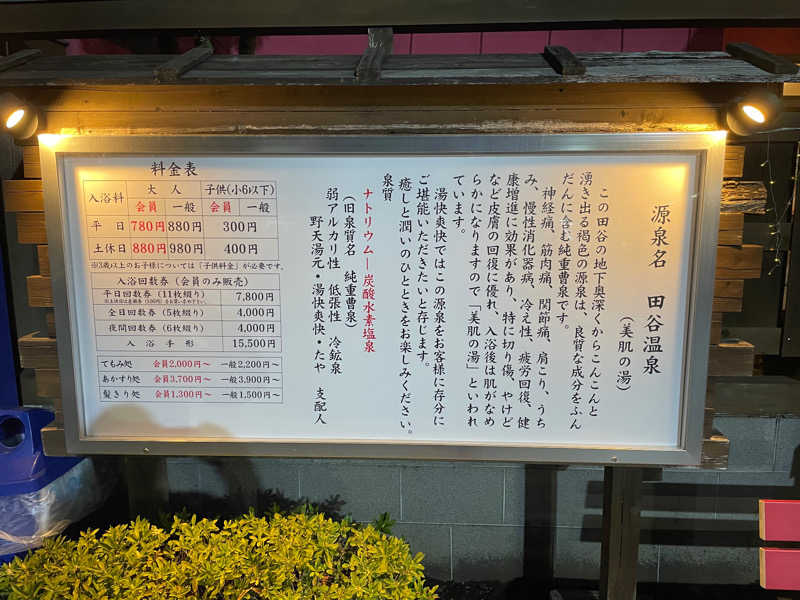 源泉名　田谷温泉
（美肌の湯）
この田谷の地下奥深くからこんこんと
湧き出る褐色の源泉は、良質な成分をふん
だんに含む純重曹泉です。
神経痛、筋肉痛、関節痛、肩こり、うち
み、慢性消化器病、冷え性、疲労回復、健
康増進に効果があり、特に切り傷、やけど
など皮膚の回復に優れ、入浴後は肌がなめ
らかになりますので「美肌の湯」といわれ
ています。
湯快爽快ではこの源泉をお客様に存分に
ご堪能いただきたいと存じます。
癒しと潤いのひとときをお楽しみください。
泉質
ナトリウム―炭酸水素塩泉
（旧泉質名　純重曹泉）
弱アルカリ性　低張性　冷鉱泉
野天湯元・湯快爽快・たや　支配人
料金表
入浴料　大人　子供(小6以下)
会員　一般　会員　一般
平日　780円　880円　300円
土休日　880円　980円　400円
※3歳以上のお子様については「子供料金」が必要です。
入浴回数券（会員のみ販売）
平日回数券（11枚綴り）　7,800円
全日回数券（5枚綴り）　4,000円
夜間回数券（6枚綴り）　4,000円
入浴手形　15,500円
てもみ処　会員2,000円～　一般2,200円～
あかすり処　会員3,700円～　一般3,900円～
髪きり処　会員1,300円～　一般1,500円～